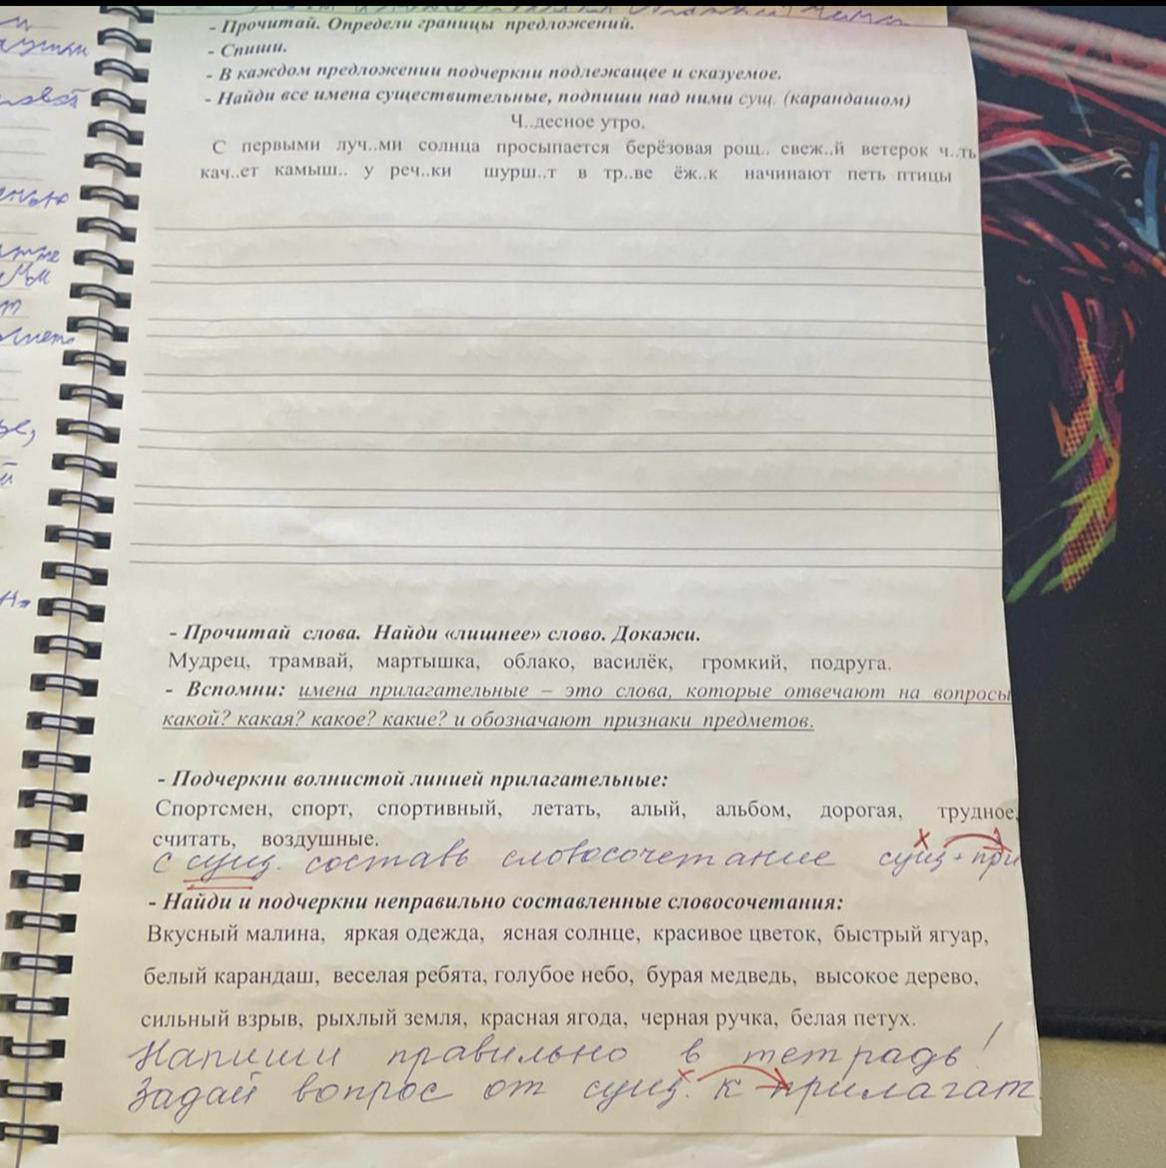 - Прочитай. Определи границы предложений.
- Спиши.
- В каждом предложении подчеркни подлежащее и сказуемое.
- Найди все имена существительные, подпиши над ними сущ. (карандашом)
Ч..десное утро.
С первыми луч..ми солнца просыпается берёзовая рощ.. свеж..й ветерок ч..ть
кач..ет камыш.. у реч..ки шурш..т в тр..ве ёж..к начинают петь птицы
- Прочитай слова. Найди «лишнее» слово. Докажи.
Мудрец, трамвай, мартышка, облако, василёк, громкий, подруга.
- Вспомни: имена прилагательные – это слова, которые отвечают на вопросы
какой? какая? какое? какие? и обозначают признаки предметов.
- Подчеркни волнистой линией прилагательные:
Спортсмен, спорт, спортивный, летать, алый, альбом, дорогая, трудное,
считать, воздушные.
с сущ. составь словосочетание сущ + при
- Найди и подчеркни неправильно составленные словосочетания:
Вкусный малина, яркая одежда, ясная солнце, красивое цветок, быстрый ягуар,
белый карандаш, веселая ребята, голубое небо, бурая медведь, высокое дерево,
сильный взрыв, рыхлый земля, красная ягода, черная ручка, белая петух.
Напиши правильно в тетрадь!
Задай вопрос от сущ. к прилагат